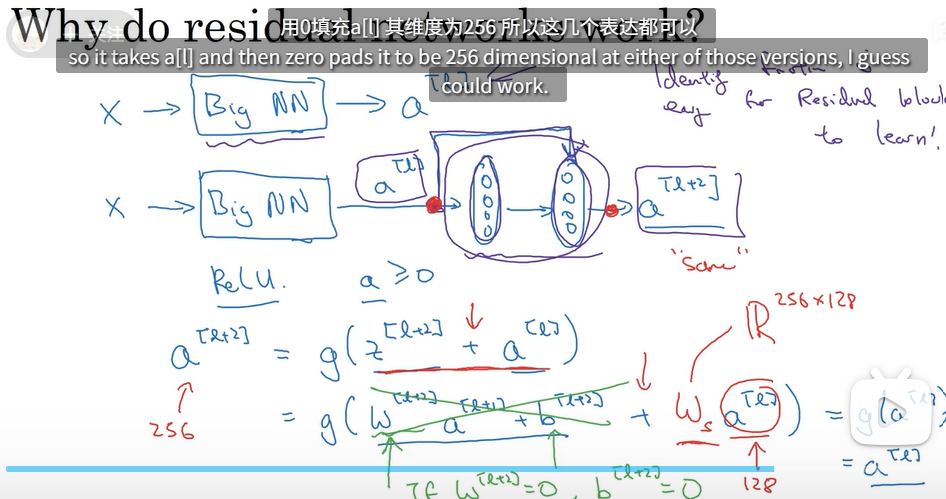 Why do residual networks work?
用0填充a[l] 其维度为256 所以这几个表达都可以
so it takes a[l] and then zero pads it to be 256 dimensional at either of those versions, I guess
could work.
X → Big NN → a^[l]
easy for Residual block
to learn!
X → Big NN → a^[l] → → a^[l+2]
"same"
ReLU. a ≥ 0
ℝ^256×128
a^[l+2] = g(z^[l+2] + a^[l])
= g(W^[l+2] a^[l+1] + b^[l+2] + W_s a^[l]) = g(a^[l])
256
= a^[l]
128
If W^[l+2]=0, b^[l+2]=0